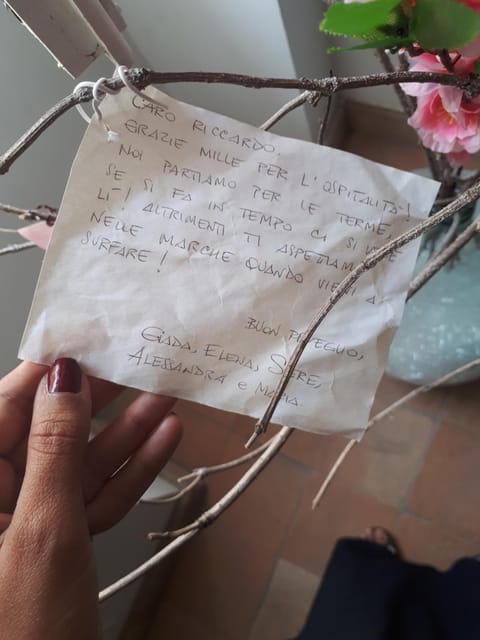 CARO RICCARDO,
GRAZIE MILLE PER L'OSPITALITÀ!
NOI PARTIAMO PER LE TERME,
SE SI FA IN TEMPO CI SI VEDE
LÌ! ALTRIMENTI TI ASPETTIAMO
NELLE MARCHE QUANDO VIENI A
SURFARE!
BUON RISVEGLIO,
GIADA, ELENA,
ALESSANDRA E